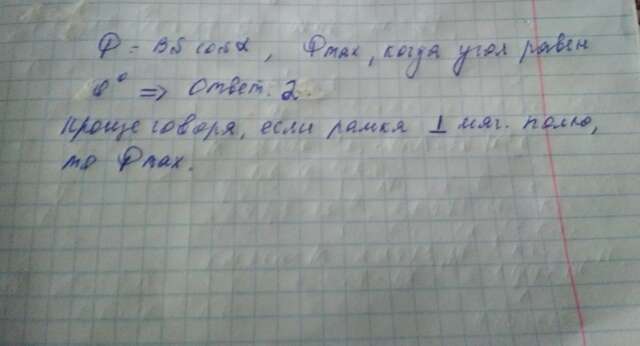 Ф = BS cos α, Фmax, когда угол равен
0° => Ответ: 2.
Проще говоря, если рамка ⊥ маг. полю,
то Фmax.